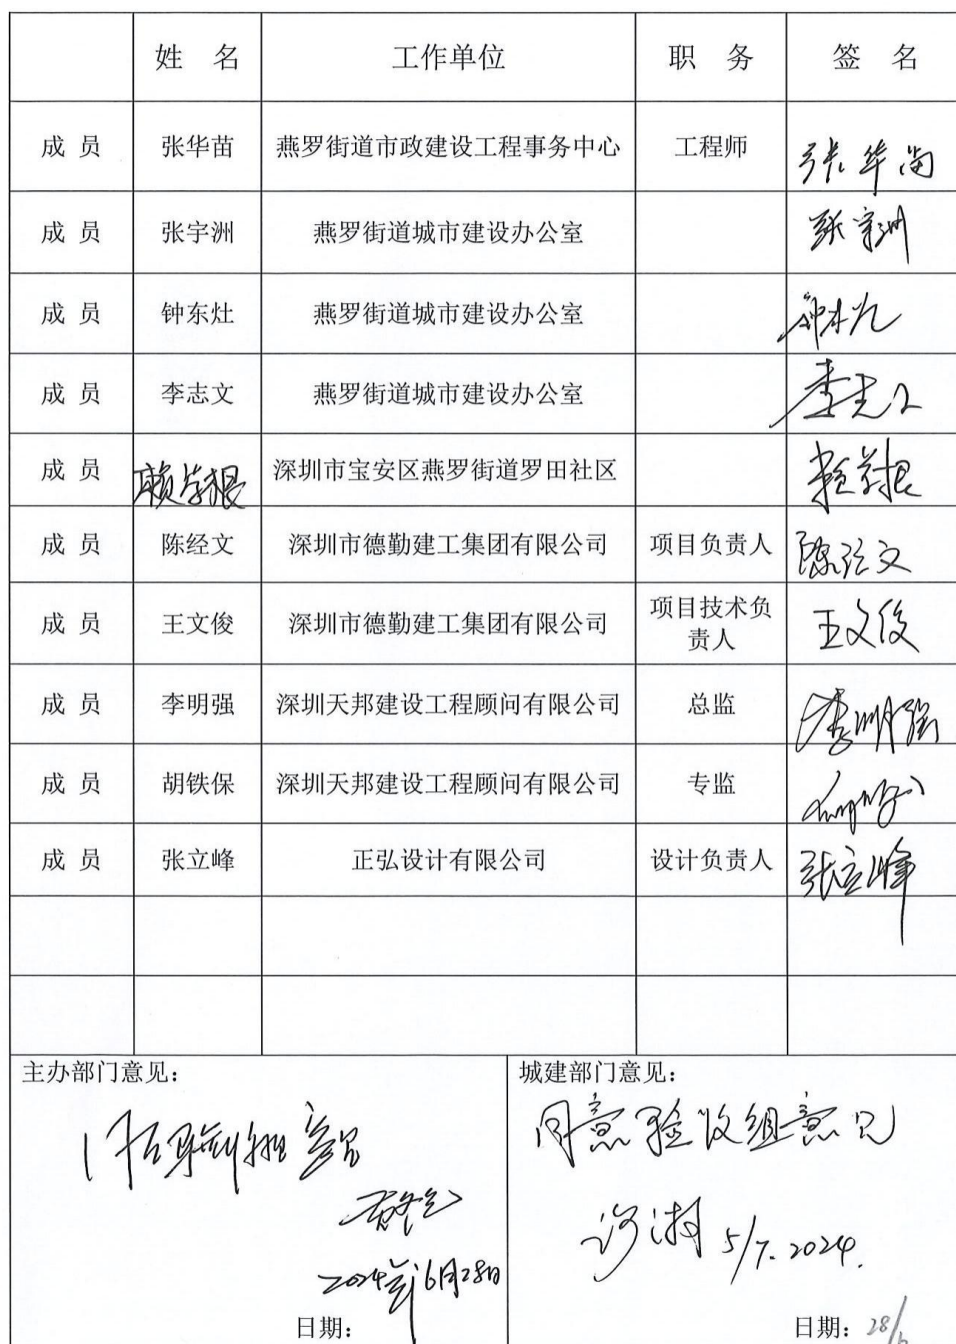 姓 名 工作单位 职 务 签 名
成 员 张华苗 燕罗街道市政建设工程事务中心 工程师 张华苗
成 员 张宇洲 燕罗街道城市建设办公室 张宇洲
成 员 钟东灶 燕罗街道城市建设办公室
成 员 李志文 燕罗街道城市建设办公室 李志文
成 员 赖学根 深圳市宝安区燕罗街道罗田社区 赖学根
成 员 陈经文 深圳市德勤建工集团有限公司 项目负责人 陈经文
成 员 王文俊 深圳市德勤建工集团有限公司 项目技术负
责人 王文俊
成 员 李明强 深圳天邦建设工程顾问有限公司 总监 李明强
成 员 胡铁保 深圳天邦建设工程顾问有限公司 专监
成 员 张立峰 正弘设计有限公司 设计负责人 张立峰
主办部门意见:
意见
2024年6月28日
日期:
城建部门意见:
同意验收组意见
5/7.2024.
日期: 28/